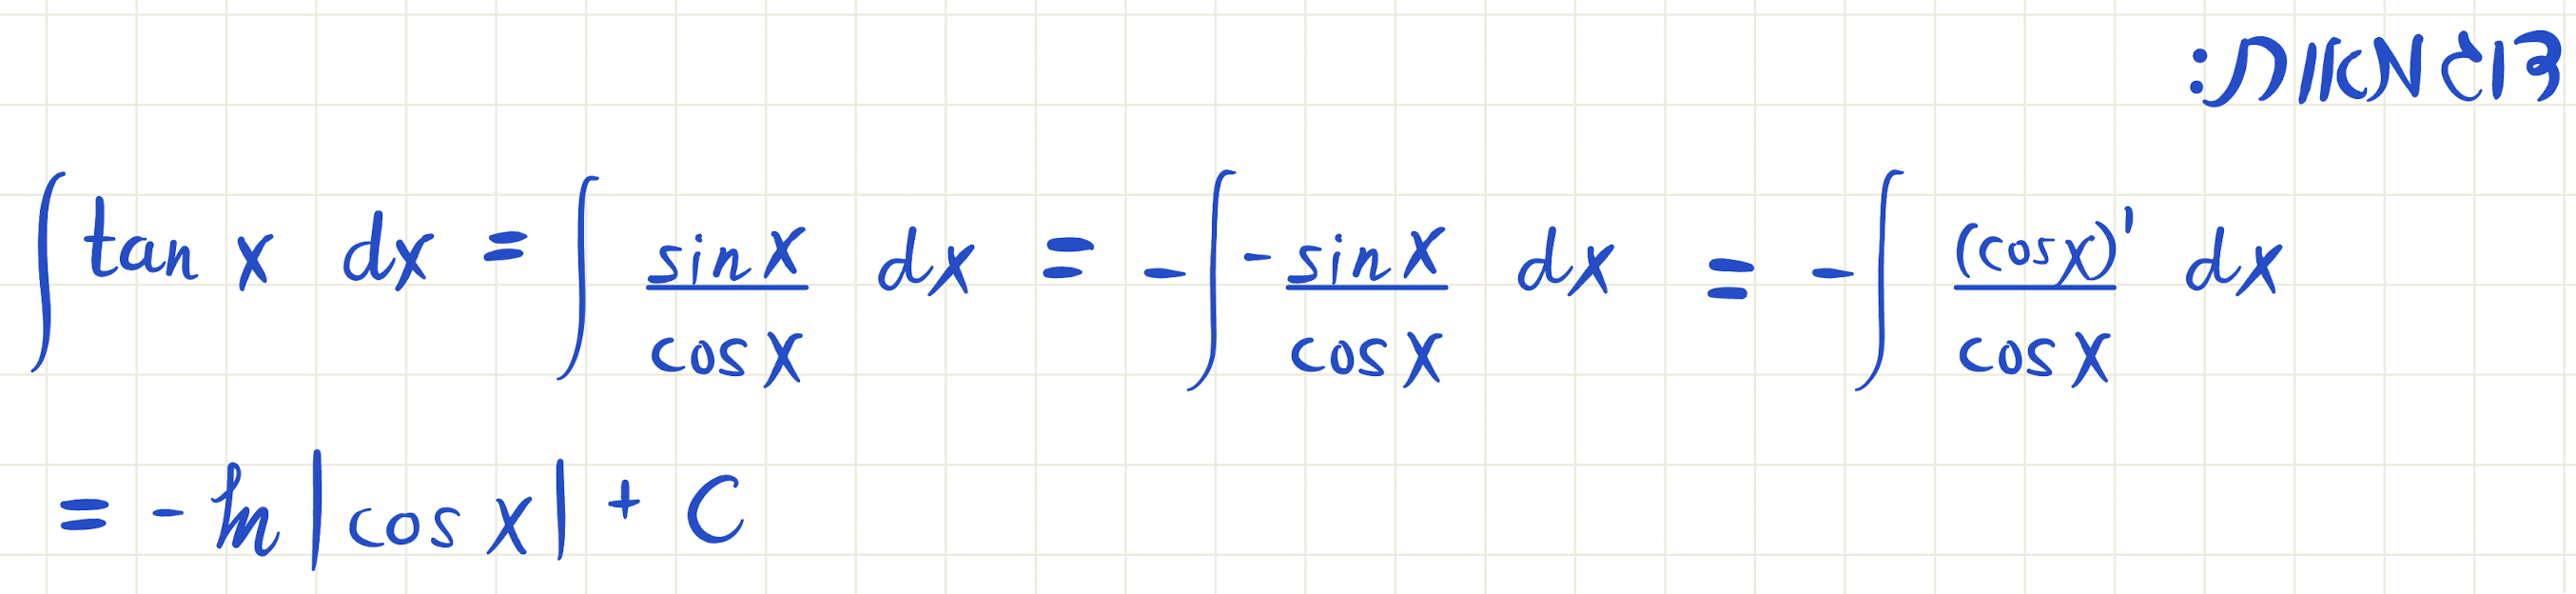 דוגמאות:
∫ tan x dx = ∫ sin x / cos x dx = - ∫ -sin x / cos x dx = - ∫ (cos x)' / cos x dx
= - ln | cos x | + C